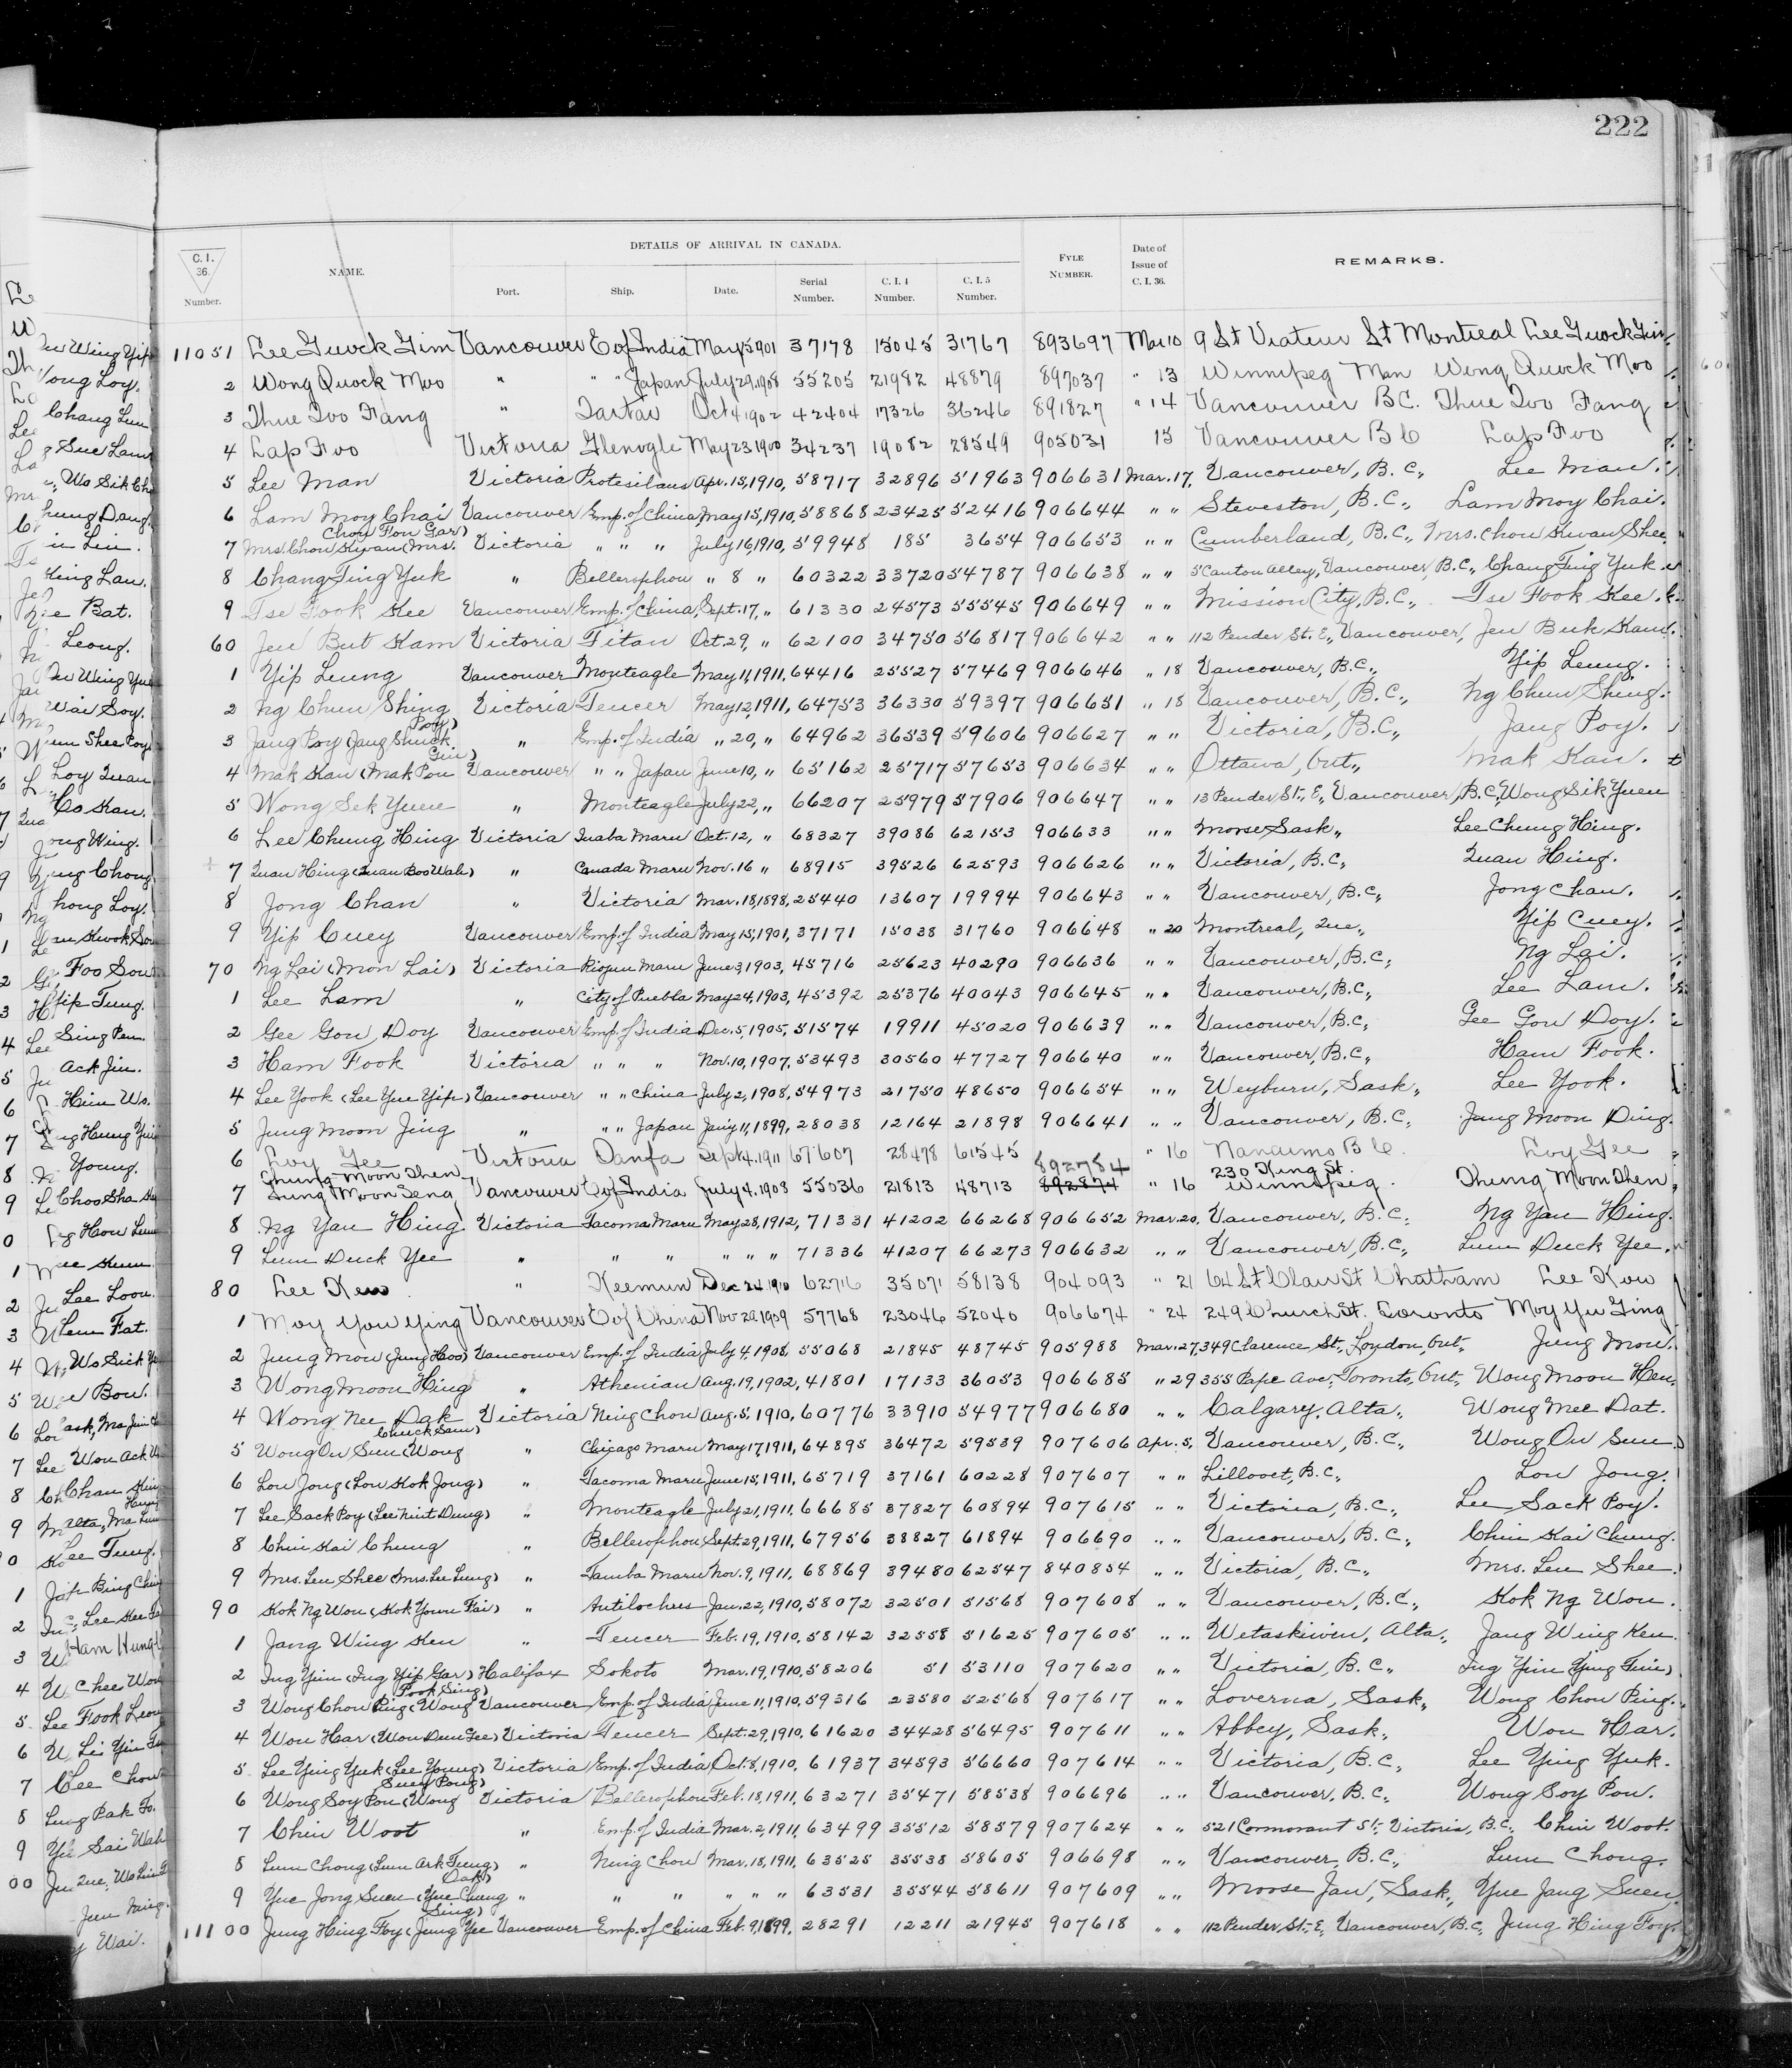 222
C. I. 36. Number.
NAME.
DETAILS OF ARRIVAL IN CANADA.
Port.
Ship.
Date.
Serial Number.
C. I. 4 Number.
C. I. 5 Number.
FYLE NUMBER.
Date of Issue of C. I. 36.
REMARKS.
11051 Lee Guock Gim Vancouver E of India May 15 1901 37178 15045 31767 893697 Mar 10 9 St Viateur St Montreal Lee Guock Gim
2 Wong Quock Moo " " " Japan July 29, 1908 55205 21982 48879 897037 " 13 Winnipeg Man Wong Quock Moo
3 Thue Too Fang " Tartar Oct 4 1902 42404 17326 36246 891827 " 14 Vancouver BC. Thue Too Fang
4 Lap Foo Victoria Glenogle May 23 1900 34237 19082 28549 905031 15 Vancouver B C Lap Foo
5 Lee Man Victoria Protesilaus Apr. 15, 1910, 58717 32896 51963 906631 Mar. 17, Vancouver, B.C., Lee Man.
6 Lam Moy Chai Vancouver Emp. of China May 15, 1910, 58868 23425 52416 906644 " " Steveston, B.C., Lam Moy Chai.
7 Mrs. Chou Kwan (Mrs. Choy Fon Gar) Victoria " " " July 16, 1910, 59948 185 3654 906653 " " Cumberland, B.C., Mrs. Chou Kwan Shee
8 Chang Ting Yuk " Bellerophon " 8 " 60322 33720 54787 906638 " " 5 Canton Alley, Vancouver, B.C., Chang Ting Yuk
9 Tse Fook Kee Vancouver Emp. of China, Sept. 17, " 61330 24573 55545 906649 " " Mission City, B.C., Tse Fook Kee.
60 Jeu But Kam Victoria Titan Oct. 29, " 62100 34750 56817 906642 " " 112 Pender St. E., Vancouver, Jeu Buk Kam.
1 Yip Leung Vancouver Monteagle May 11, 1911, 64416 25527 57469 906646 " 18 Vancouver, B.C., Yip Leung.
2 Ng Chun Shing Victoria Teucer May 12, 1911, 64753 36330 59397 906651 " 18 Vancouver, B.C., Ng Chun Shing.
3 Jang Poy (Jang Shuck Poy) " Emp. of India " 20, " 64962 36539 59606 906627 " " Victoria, B.C., Jang Poy.
4 Mak Kan (Mak Pon Gin) Vancouver " " Japan June 10, " 65162 25717 57653 906634 " " Ottawa, Ont., Mak Kan.
5 Wong Sek Yuen " Monteagle July 22, " 66207 25979 57906 906647 " " 13 Pender St., E., Vancouver, B.C., Wong Sik Yuen
6 Lee Chung Hing Victoria Inaba Maru Oct. 12, " 68327 39086 62153 906633 " " Morse Sask., Lee Chung Hing.
7 Quan Hing (Quan Boo Wah) " Canada Maru Nov. 16 " 68915 39526 62593 906626 " " Victoria, B.C., Quan Hing.
8 Jong Chan " Victoria Mar. 18, 1898, 25440 13607 19994 906643 " " Vancouver, B.C., Jong Chan.
9 Yip Cuey Vancouver Emp. of India May 15, 1901, 37171 15038 31760 906648 " 20 Montreal, Que., Yip Cuey.
70 Ng Lai (Mon Lai) Victoria Riojun Maru June 3, 1903, 45716 25623 40290 906636 " " Vancouver, B.C., Ng Lai.
1 Lee Lam " City of Puebla May 24, 1903, 45392 25376 40043 906645 " " Vancouver, B.C., Lee Lam.
2 Gee Gou Doy Vancouver Emp. of India Dec. 5, 1905, 51574 19911 45020 906639 " " Vancouver, B.C., Gee Gou Doy.
3 Ham Fook Victoria " " " Nov. 10, 1907, 53493 30560 47727 906640 " " Vancouver, B.C., Ham Fook.
4 Lee Yook (Lee Yue Yip) Vancouver " " China July 2, 1908, 54973 21750 48650 906654 " " Weyburn, Sask., Lee Yook.
5 Jung Moon Jing " " " Japan Jan'y 11, 1899, 28038 12164 21898 906641 " " Vancouver, B.C., Jung Moon Ding.
6 Loy Gee Victoria Oanfa Sept 4. 1911 67607 28478 61545 " 16 Nanaimo B C. Loy Gee
7 Chung Moon Then Tung Moon Seng Vancouver E of India July 4. 1908 55036 21813 48713 892784 892874 " 16 230 King St. Winnipeg. Thung Moon Then
8 Ng Yan Hing Victoria Tacoma Maru May 28, 1912, 71331 41202 66268 906652 Mar. 20, Vancouver, B.C., Ng Yan Hing.
9 Lum Duck Yee " " " " " " 71336 41207 66273 906632 " " Vancouver, B.C., Lum Duck Yee.
80 Lee Kew " Keemun Dec 24 1910 62716 35071 58138 904093 " 21 64 St Clair St Chatham Lee Kow
1 Moy You Ying Vancouver E of China Nov 20 1909 57768 23046 52040 906674 " 24 249 Church St. Toronto Moy Yu Ging
2 Jung Mou (Jung Hoo) Vancouver Emp. of India July 4, 1908, 55068 21845 48745 905988 Mar. 27, 349 Clarence St., London, Ont., Jung Mou.
3 Wong Moon Hing " Athenian Aug. 19, 1902, 41801 17133 36053 906685 " 29 355 Pape Ave., Toronto, Ont., Wong Moon Hen.
4 Wong Nee Dak Victoria Ning Chou Aug. 5, 1910, 60776 33910 54977 906680 " " Calgary, Alta., Wong Mee Dat.
5 Wong On Sun (Wong Chuck Sam) " Chicago Maru May 17, 1911, 64895 36472 59539 907606 Apr. 5, Vancouver, B.C., Wong On Sun.
6 Lou Jong (Lou Kok Jong) " Tacoma Maru June 15, 1911, 65719 37161 60228 907607 " " Lillooet, B.C., Lou Jong.
7 Lee Sack Poy (Lee Huit Dung) " Monteagle July 21, 1911, 66685 37827 60894 907615 " " Victoria, B.C., Lee Sack Poy.
8 Chin Kai Chung " Bellerophon Sept. 29, 1911, 67956 38827 61894 906690 " " Vancouver, B.C., Chin Kai Chung.
9 Mrs. Leu Shee (Mrs. Lee Lung) " Tamba Maru Nov. 9, 1911, 68869 39480 62547 840854 " " Victoria, B.C., Mrs. Leu Shee.
90 Kok Ng Wou (Kok Youn Fai) " Antilochus Jan. 22, 1910, 58072 32501 51568 907608 " " Vancouver, B.C., Kok Ng Wou.
1 Jang Wing Ken " Teucer Feb. 19, 1910, 58142 32558 51625 907605 " " Wetaskiwin, Alta., Jang Wing Ken.
2 Ing Yim (Ing Yip Gar) Halifax Sokoto Mar. 19, 1910, 58206 51 53110 907620 " " Victoria, B.C., Ing Yim (Yung Tim)
3 Wong Chou Ping (Wong Fook Sing) Vancouver Emp. of India June 11, 1910, 59316 23580 52568 907617 " " Loverna, Sask., Wong Chou Ping.
4 Wou Har (Wou Dun Gee) Victoria Teucer Sept. 29, 1910, 61620 34428 56495 907611 " " Abbey, Sask., Wou Har.
5 Lee Ying Yuk (Lee Young) Victoria Emp. of India Oct. 8, 1910, 61937 34593 56660 907614 " " Victoria, B.C., Lee Ying Yuk.
6 Wong Soy Pou (Wong Suey Pong) Victoria Bellerophon Feb. 18, 1911, 63271 35471 58538 906696 " " Vancouver, B.C. Wong Soy Pou.
7 Chin Woot " Emp. of India Mar. 2, 1911, 63499 35512 58579 907624 " " 521 Cormorant St., Victoria, B.C., Chin Woot.
8 Lum Chong (Lum Ark Tung) " Ning Chou Mar. 18, 1911, 63525 35538 58605 906698 " " Vancouver, B.C., Lum Chong.
9 Yue Jong Suen (Yue Chung Oak) " " " " " " 63531 35544 58611 907609 " " Moose Jaw, Sask., Yue Jang Suen.
11100 Jung Hing Foy (Jung Yee Sing) Vancouver Emp. of China Feb. 9, 1899, 28291 12211 21945 907618 " " 112 Pender St., E., Vancouver, B.C., Jung Hing Foy.